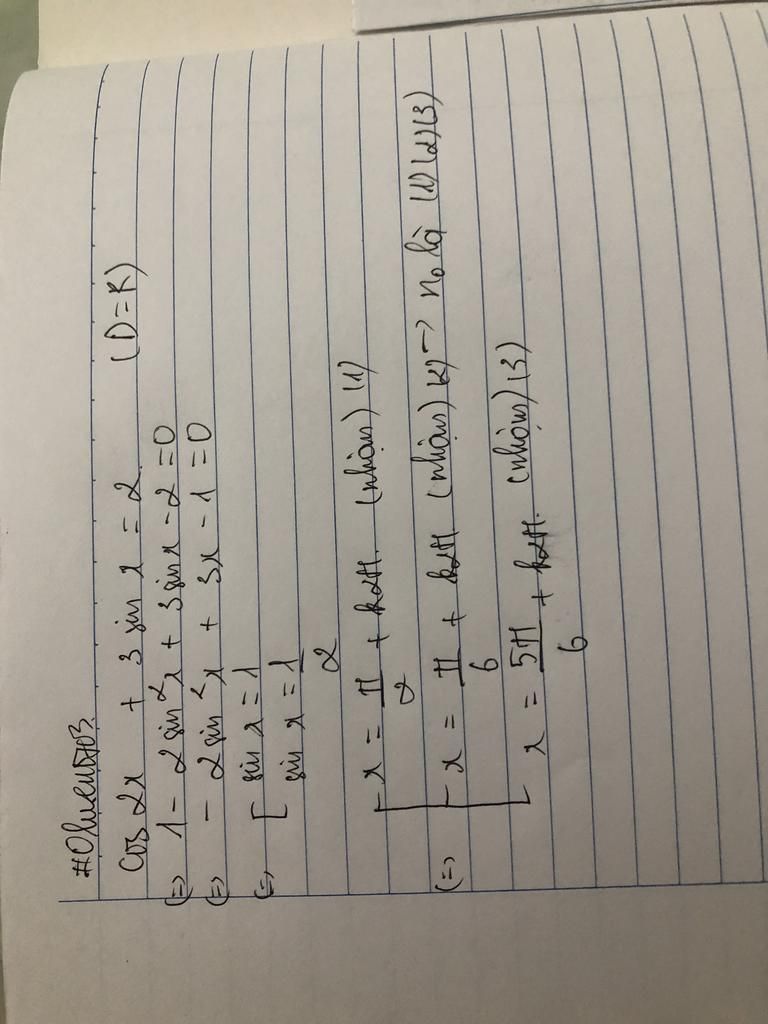 #Oliver11703
cos 2x + 3 sin x = 2 (D=R)
(=> 1 - 2 sin²x + 3 sin x - 2 = 0
(=> - 2 sin²x + 3x - 1 = 0
(=> [ sin x = 1
sin x = 1/2
x = π/2 + k2π. (nhận) (1)
(=> x = π/6 + k2π (nhận) (2) -> no là (1) (2) (3)
x = 5π/6 + k2π. (nhận) (3)